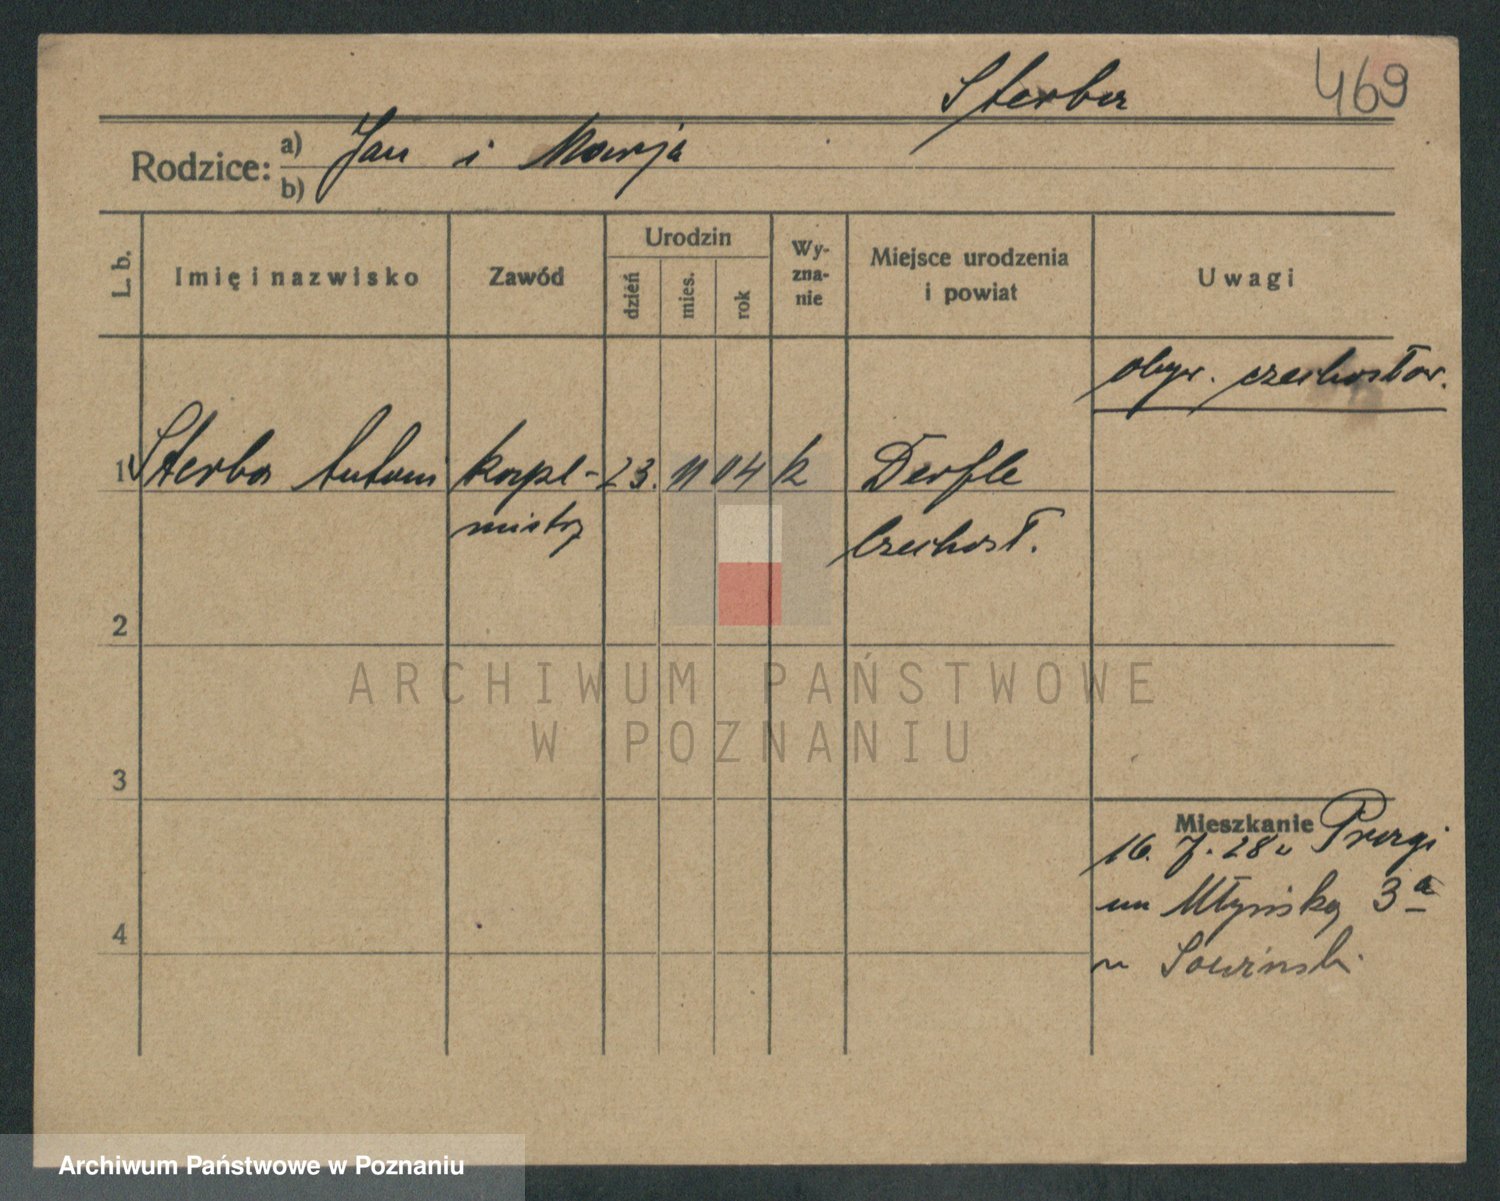 Sterba 469
Rodzice: a) Jan i Marja
b)
L. b. Imię i nazwisko Zawód Urodzin Wy-zna-nie Miejsce urodzenia i powiat Uwagi
dzień mies. rok
obyw. czechosłow.
1 Sterba Antoni kapel- 23. 11 04 k Derfle
mistrz Czechosł.
2
ARCHIWUM PAŃSTWOWE
W POZNANIU
3
Mieszkanie
16. 7. 28 z Pragi
na Młyńską 3a
u Sowiński
4
Archiwum Państwowe w Poznaniu